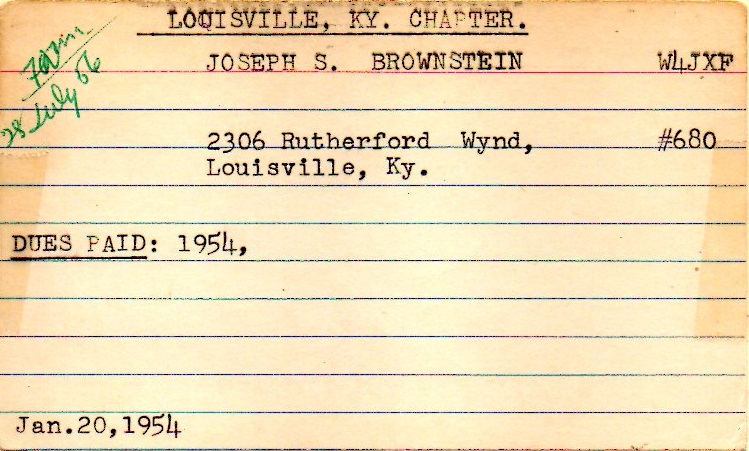 LOUISVILLE, KY. CHAPTER.
JOSEPH S. BROWNSTEIN W4JXF
28 July 56
2306 Rutherford Wynd, #680
Louisville, Ky.
DUES PAID: 1954,
Jan.20,1954